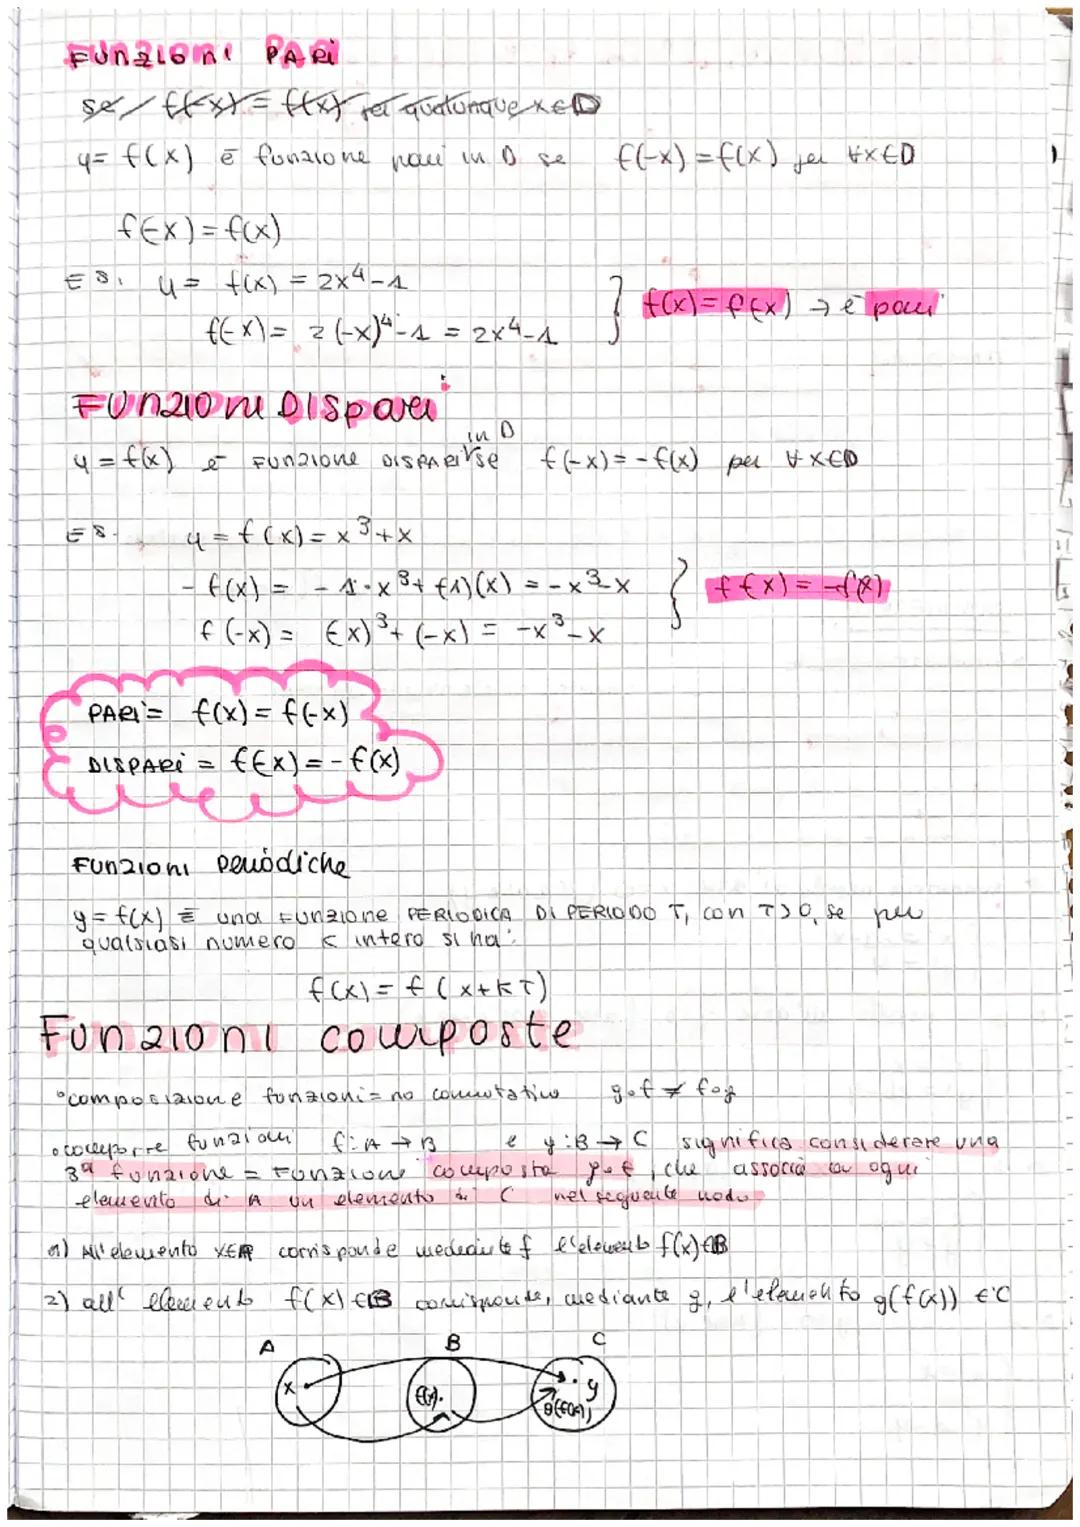 FUNZIONI PARI
se f(-x) = f(x) per qualunque x∈D
y= f(x) è funzione pari in D se f(-x) = f(x) per ∀x∈D
f(-x) = f(x)
ES. y = f(x) = 2x⁴-1
f(-x) = 2(-x)⁴-1 = 2x⁴-1 } f(x) = f(-x) → è pari
FUNZIONI DISpari
y = f(x) è FUNZIONE DISPARI in D se f(-x) = -f(x) per ∀x∈D
ES. y = f(x) = x³+x
- f(x) = - 1·x³+(-1)(x) = -x³-x
f(-x) = (-x)³+(-x) = -x³-x } f(-x) = -f(x)
PARI = f(x) = f(-x)
DISPARI = f(-x) = -f(x)
FUNZIONI periodiche
y = f(x) È una FUNZIONE PERIODICA DI PERIODO T, con T>0, se per
qualsiasi numero K intero si ha:
f(x) = f(x+KT)
Funzioni composte
°composizione funzioni = no commutativa g∘f ≠ f∘g
°comporre funzioni f:A→B e g:B→C significa considerare una
3ª funzione = Funzione composta g∘f, che associa a ogni
elemento di A un elemento di C nel seguente modo
1) All'elemento x∈A corrisponde mediante f l'elemento f(x)∈B
2) all' elemento f(x)∈B corrisponde, mediante g, l'elemento g(f(x)) ∈ C
A B C
x f(x) y
g(f(x))